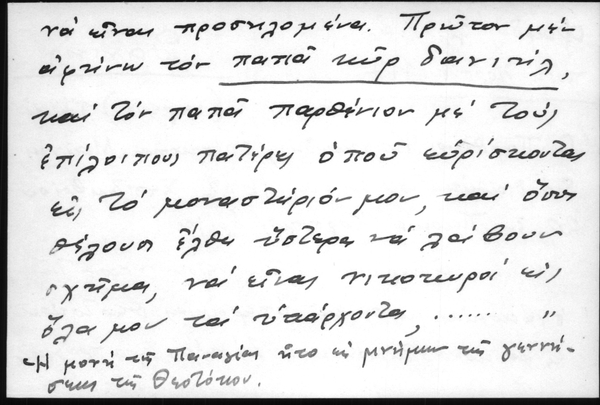 νά εἶναι προσηλομένα. Πρῶτον μέν
ἀφήνω τόν παπᾶ κῦρ δανιήλ,
καί τόν παπᾶ παρθένιον μέ τούς
ἐπίλοιπους πατέρες ὁποῦ εὑρίσκονται
εἰς τό μοναστήριόν μου, καί ὅσοι
θέλουσι ἔλθει ὕστερα νά λαίβουν
σχῆμα, νά εἶναι νικοκυροί εἰς
ὅλα μου τά ὑπάρχοντα, ...... "
-Ἡ μονή τῆς Παναγίας ἦτο εἰς μνήμην τῆς γεννή-
σεως τῆς Θεοτόκου.